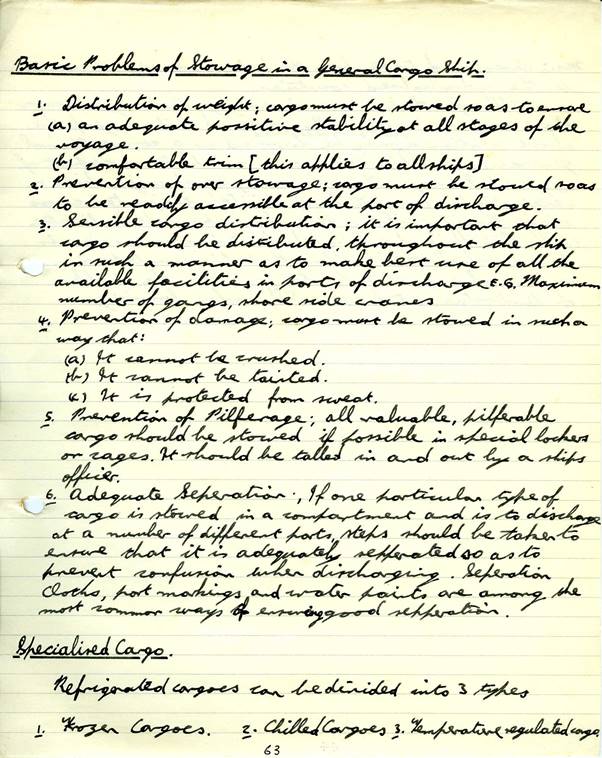 Basic Problems of Stowage in a General Cargo Ship.
1. Distribution of weight; cargo must be stowed so as to ensure
(a) an adequate possitive stability at all stages of the
voyage.
(b) comfortable trim [this applies to all ships]
2. Prevention of over stowage; cargo must be stowed so as
to be readily accessible at the port of discharge.
3. Sensible cargo distribution; it is important that
cargo should be distributed, throughout the ship
in such a manner as to make best use of all the
available facilities in ports of discharge E.G. Maximum
number of gangs, shore side cranes
4. Prevention of damage; cargo must be stowed in such a
way that:
(a) It cannot be crushed.
(b) It cannot be tainted.
(c) It is protected from sweat.
5. Prevention of Pilferage; all valuable, pilferable
cargo should be stowed if possible in special lockers
or cages. It should be tallied in and out by a ships
officer.
6. Adequate Seperation., If one particular type of
cargo is stowed in a compartment and is to discharge
at a number of different ports, steps should be taken to
ensure that it is adequately sepperated so as to
prevent confusion when discharging. Seperation
Cloths, port markings, and water paints are among the
most common ways of ensuring good sepperation.
Specialised Cargo.
Refrigerated cargoes can be divided into 3 types
1. Frozen Cargoes. 2. Chilled Cargoes 3. Temperature regulated cargo
63